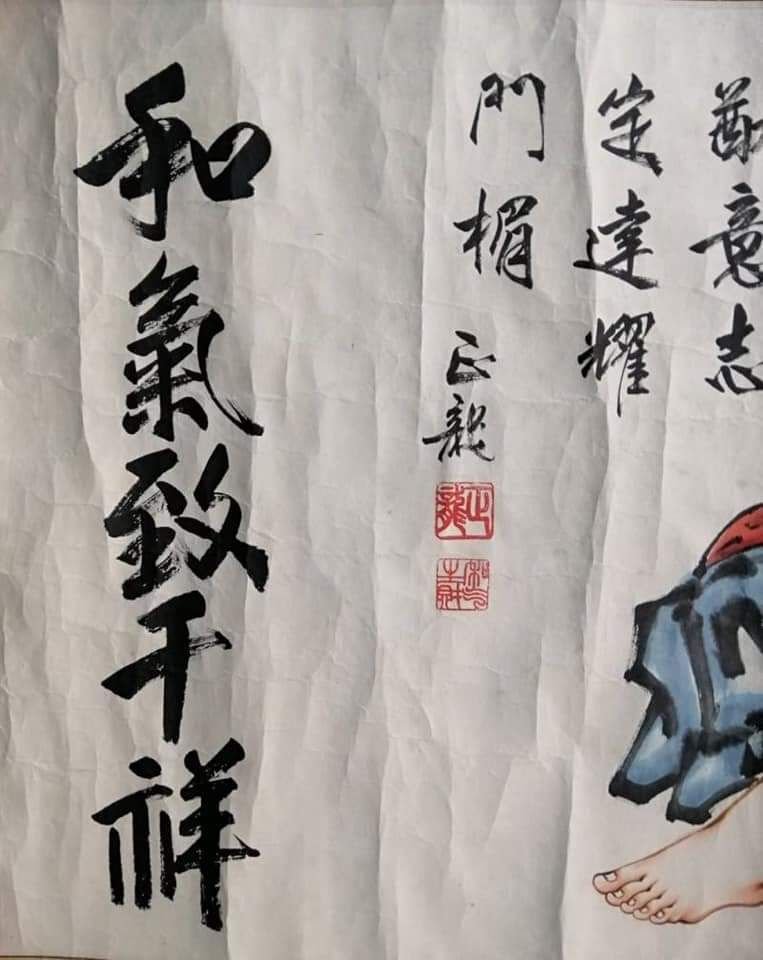 意志
定達耀
門楣
正龍
正龍
和氣致千祥